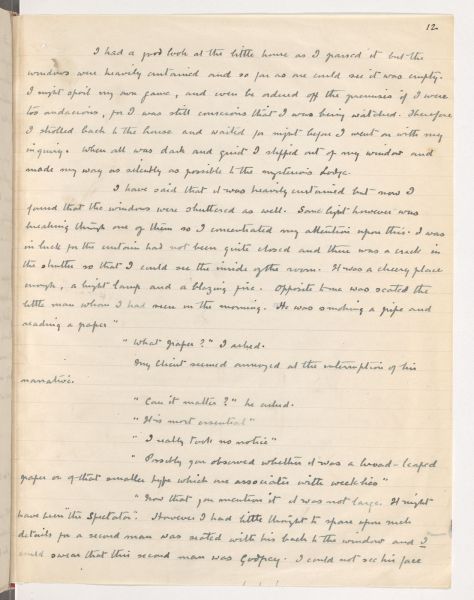 12.
I had a good look at the little house as I passed it but the
windows were heavily curtained and so far as one could see it was empty.
I might spoil my own game, and even be ordered off the premises if I were
too audacious, for I was still conscious that I was being watched. Therefore
I strolled back to the house and waited for night before I went on with my
inquiry. When all was dark and quiet I slipped out of my window and
made my way as silently as possible to the mysterious lodge.
I have said that it was heavily curtained but now I
found that the windows were shuttered as well. Some light however was
breaking through one of them so I concentrated my attention upon this. I was
in luck for the curtain had not been quite closed and there was a crack in
the shutter so that I could see the inside of the room. It was a cheery place
enough, a bright lamp and a blazing fire. Opposite to me was seated the
little man whom I had seen in the morning. He was smoking a pipe and
reading a paper"
"What paper?" I asked.
My client seemed annoyed at the interruption of his
narrative.
"Can it matter?" he asked.
"It is most essential"
"I really took no notice"
"Possibly you observed whether it was a broad-leafed
paper or of that smaller type which one associates with weeklies"
"Now that you mention it it was not large. It might
have been "the Spectator". However I had little thought to spare upon such
details for a second man was seated with his back to the window and I
could swear that this second man was Godfrey. I could not see his face